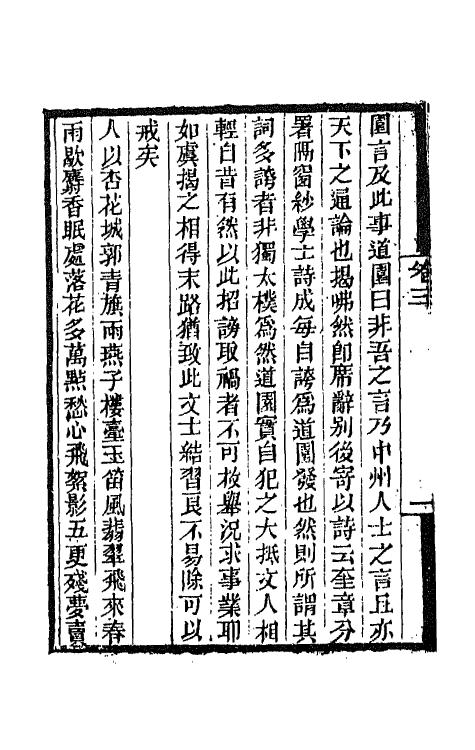 園言及此事道園曰非吾之言乃中州人士之言且亦
天下之通論也揭咈然即席辭別後寄以詩云奎章分
署隔窗紗學士詩成每自誇為道園發也然則所謂其
詞多誇者非獨太樸為然道園實自犯之大抵文人相
輕自昔有然以此招謗取禍者不可枚舉況求事業耶
如虞揭之相得末路猶致此文士結習良不易除可以
戒矣
人以杏花城郭青旗雨燕子樓臺玉笛風翡翠飛來春
雨歇麝香眠處落花多萬點愁心飛絮影五更殘夢賣
卷三